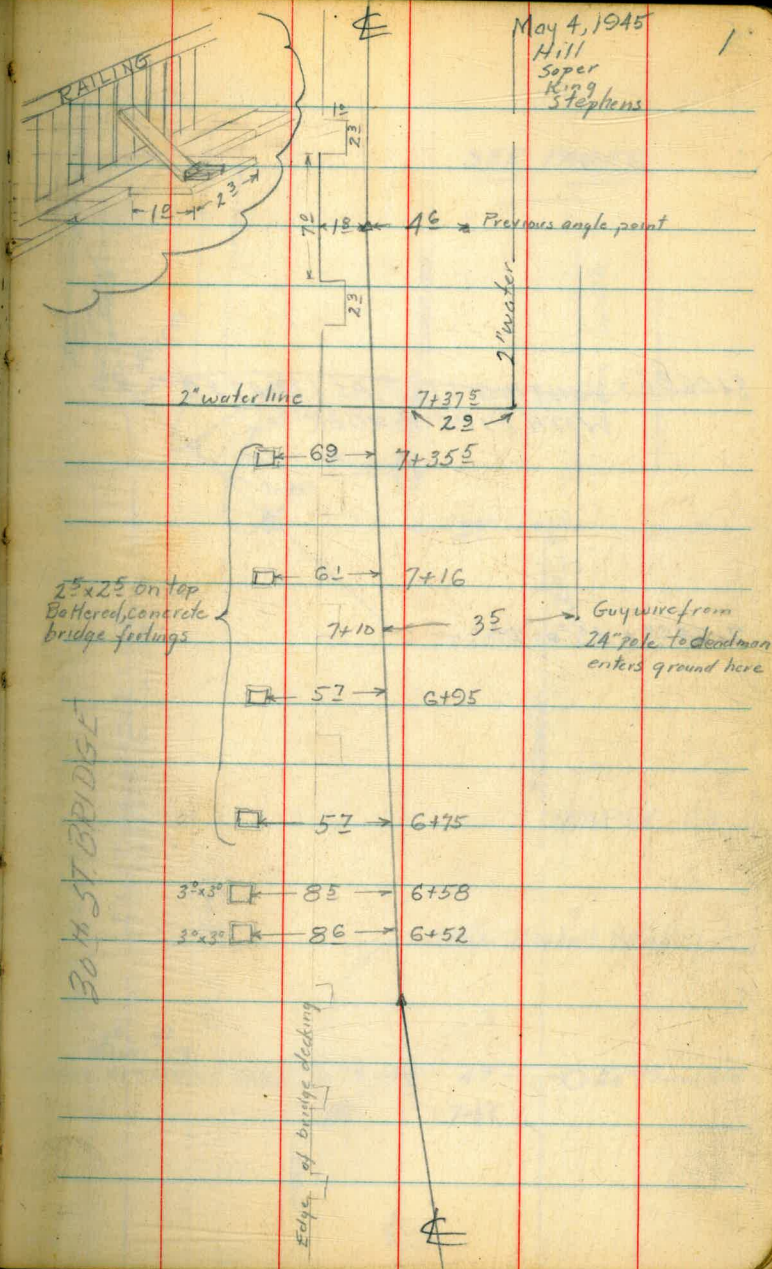 May 4, 1945
Hill
Soper
King
Stephens
1
RAILING
1º
2³
℄
1º
2³
7º
1⁸
4⁶
Previous angle point
2³
2" water
2" water line
7+37⁵
2⁹
6⁹
7+35⁵
6¹
7+16
2⁵x2⁵ on top
Battered, concrete
bridge footings
7+10
3⁵
Guy wire from
24" pole to deadman
enters ground here
5⁷
6+95
5⁷
6+75
30th ST BRIDGE
3ºx3º
8⁵
6+58
3ºx3º
8⁶
6+52
Edge of bridge decking
℄